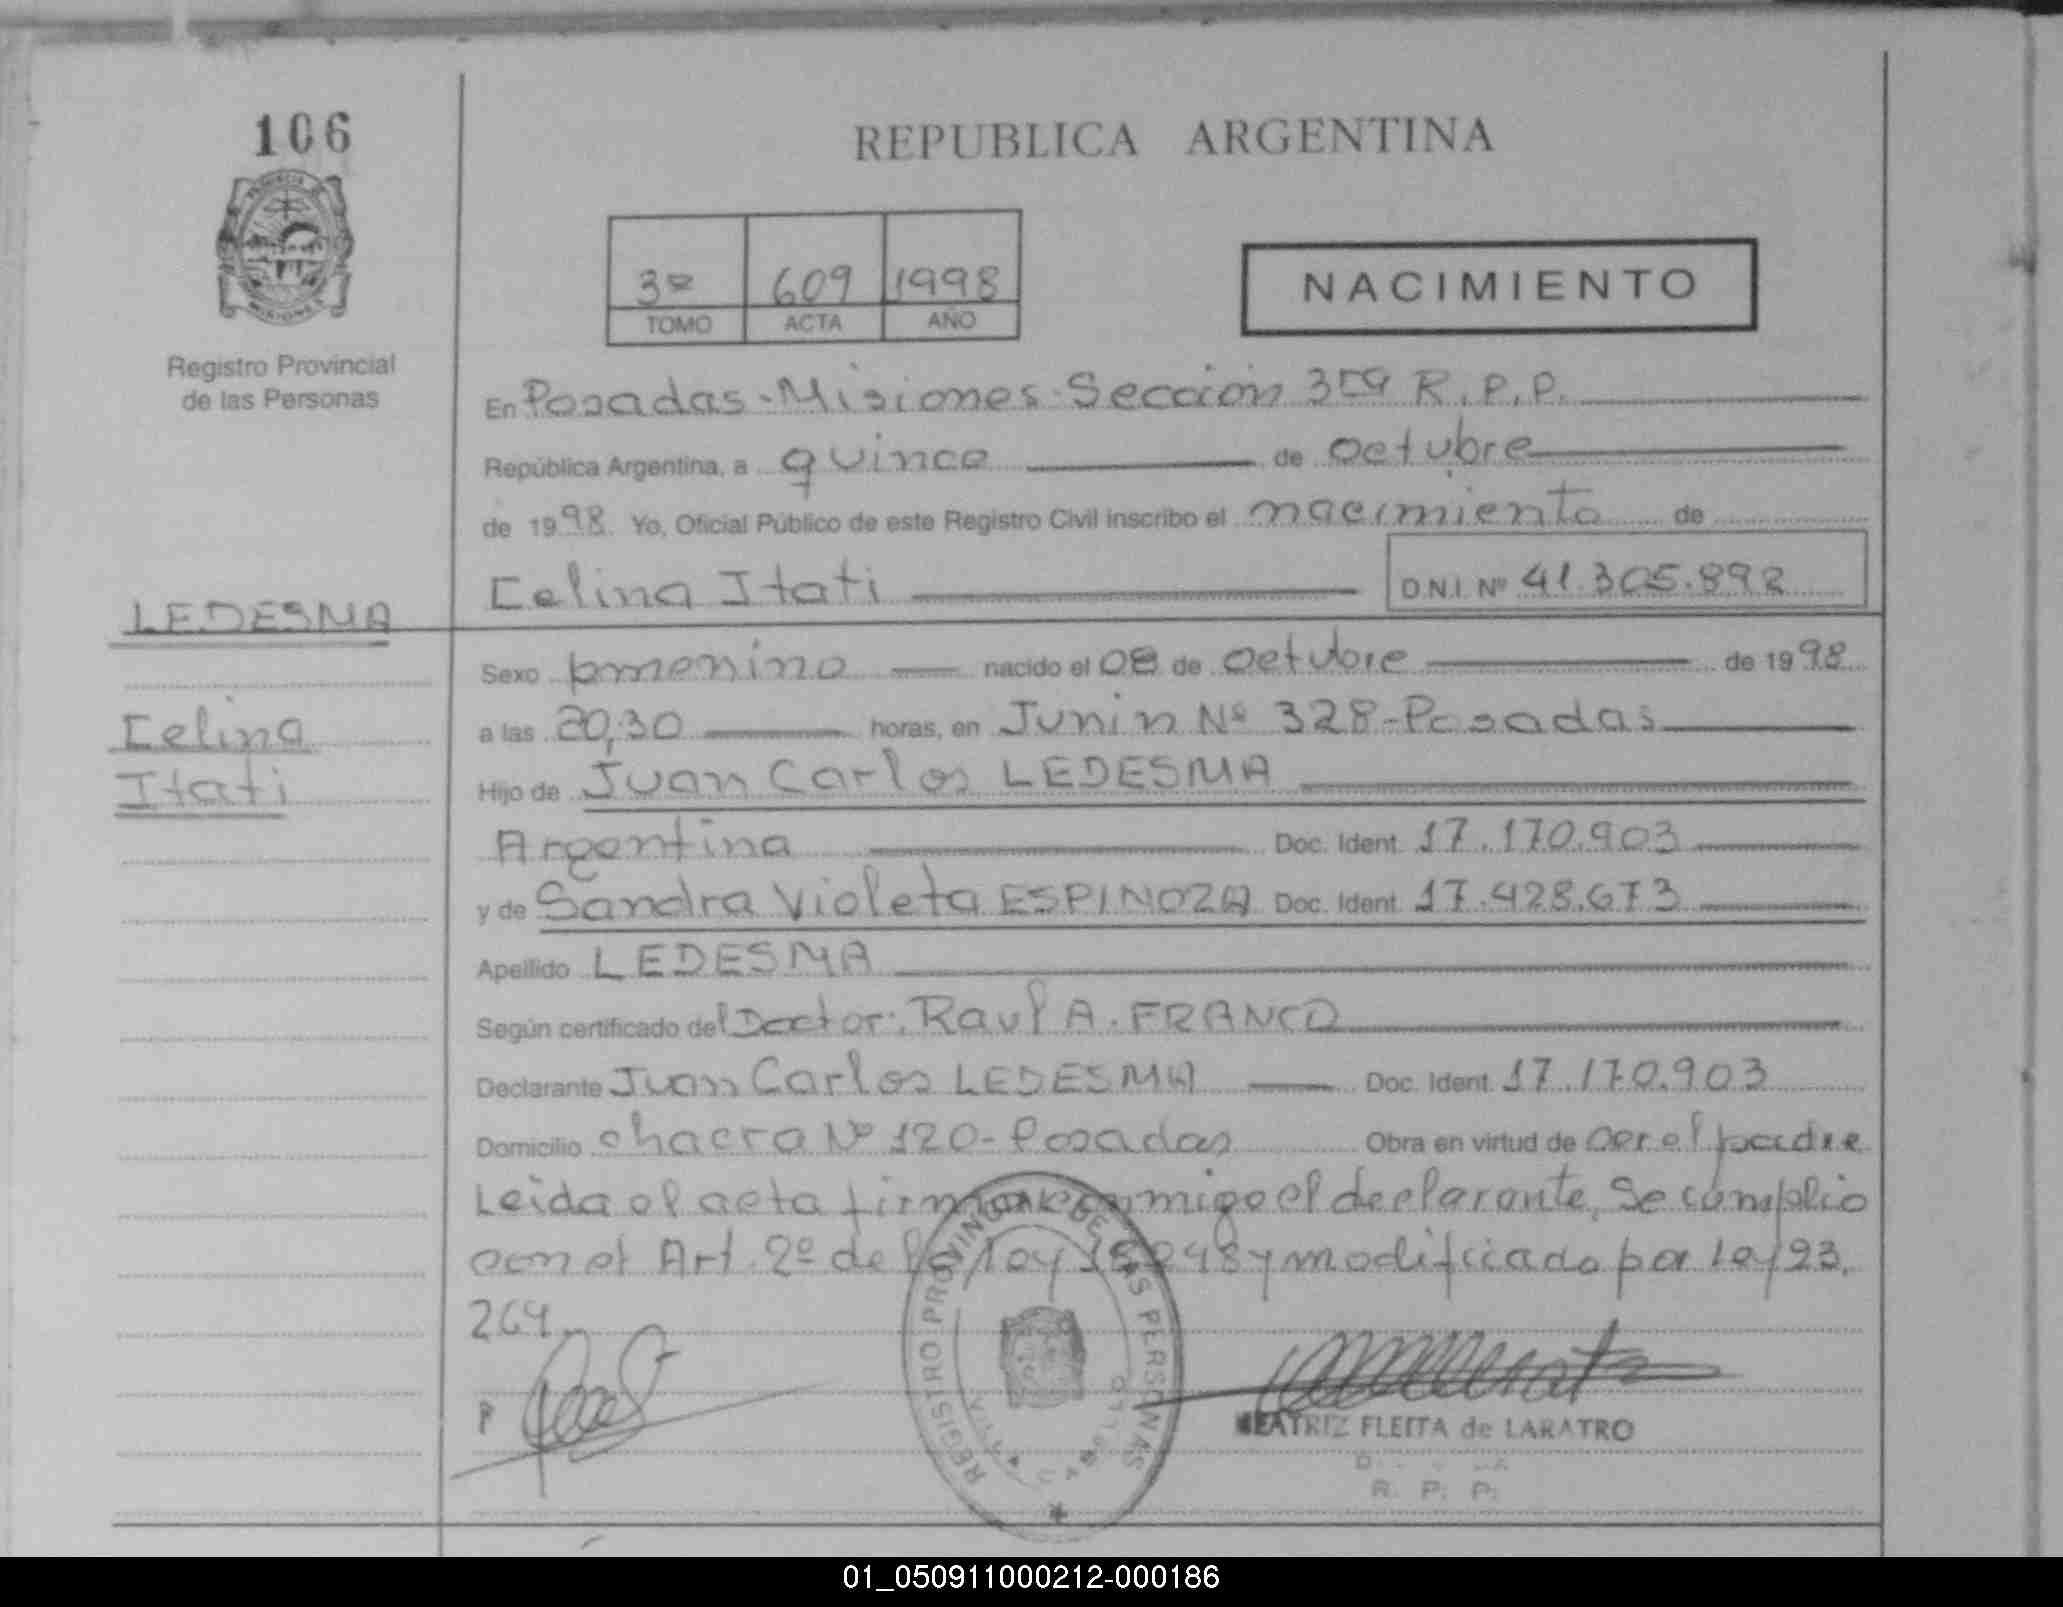 106
REPUBLICA ARGENTINA
3º 609 1998
TOMO ACTA AÑO
NACIMIENTO
Registro Provincial
de las Personas
En Posadas - Misiones - Sección 3ra R.P.P.
República Argentina, a quince de octubre
de 1998 Yo, Oficial Público de este Registro Civil inscribo el nacimiento de
Celina Itati D.N.I. Nº 41.305.892
LEDESMA
Celina
Itati
Sexo femenino nacido el 08 de octubre de 1998
a las 20,30 horas, en Junin Nº 328 - Posadas
Hijo de Juan Carlos LEDESMA
Argentina Doc. Ident. 17.170.903
y de Sandra Violeta ESPINOZA Doc. Ident. 17.428.673
Apellido LEDESMA
Según certificado del Doctor: Raul A. FRANCO
Declarante Juan Carlos LEDESMA Doc. Ident. 17.170.903
Domicilio chacra Nº 120 - Posadas Obra en virtud de ser el padre
Leida el acta firma conmigo el declarante, Se cumplio
con el Art. 2º de la ley 18248 y modificado por ley 23.
264
REGISTRO PROVINCIAL DE LAS PERSONAS
BEATRIZ FLEITA de LARATRO
R. P. P.
01_050911000212-000186